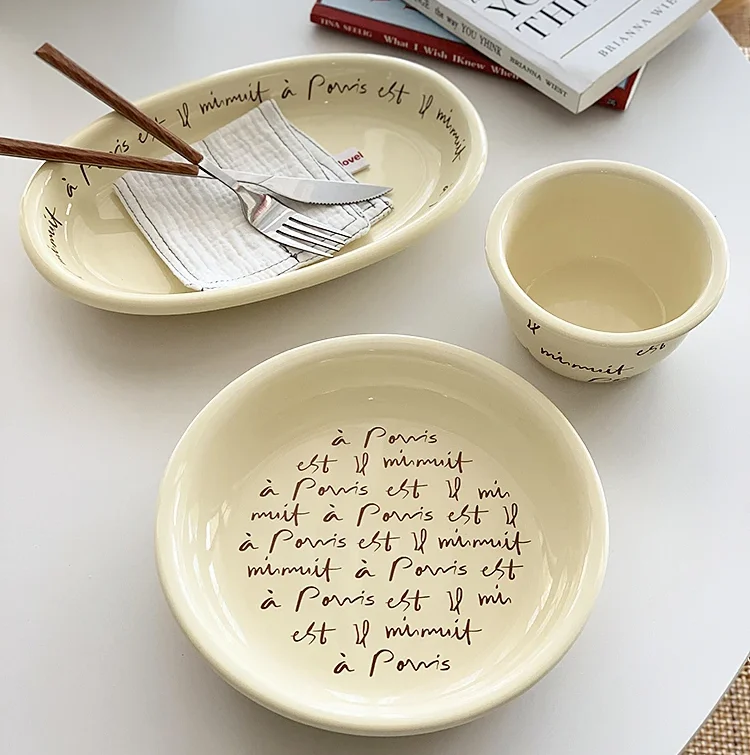 YOU
THI
BRIANNA W
the way YOU YHINK BRIANNA WIEST
TINA SEELIG What I Wish IKnew When
à Paris est Il minuit à Paris est Il minuit
minuit
lovel
Il est
minuit
à Paris
est Il minuit
à Paris est Il mi
nuit à Paris est Il
à Paris est Il minuit
minuit à Paris est
à Paris est Il mi
est Il minuit
à Paris